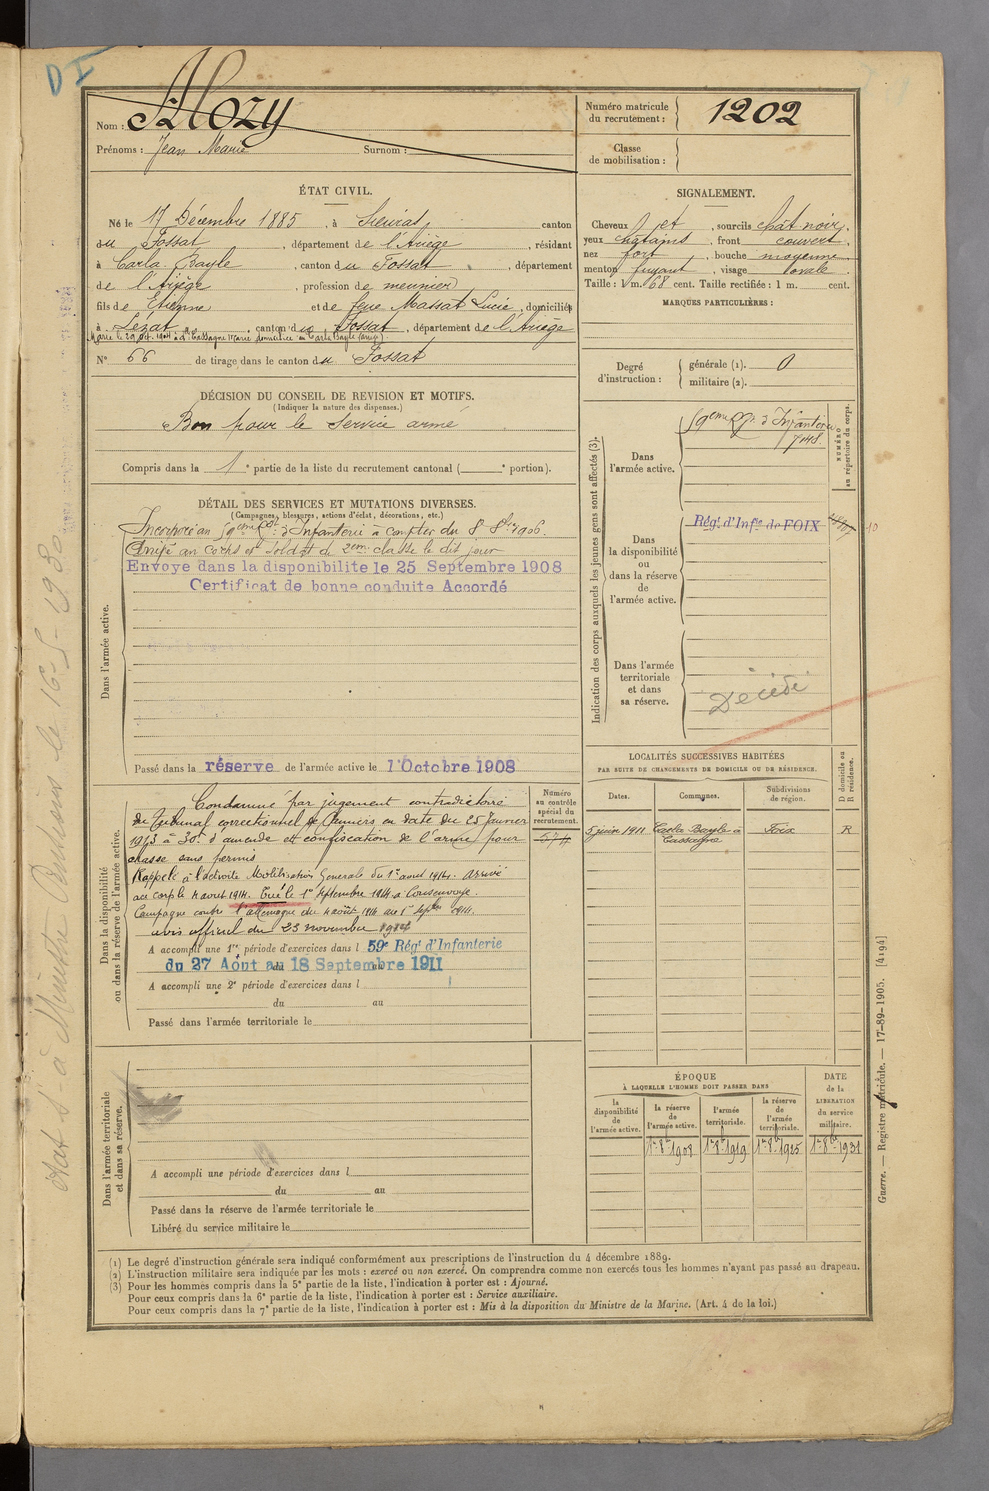 D I
Nom : Mozy
Prénoms : Jean Marie Surnom :
Numéro matricule du recrutement : 1202
Classe de mobilisation :
ÉTAT CIVIL.
Né le 17 Décembre 1885, à Sieuras, canton
du Fossat, département de l'Ariège, résidant
à Carla-Bayle, canton du Fossat, département
de l'Ariège, profession de meunier
fils de Etienne et de feue Massat Lucie, domiciliés
à Lézat, canton du Fossat, département de l'Ariège
Marié le 29 Oct. 1904 à Dlle Cassagne Marie domiciliée au Carla Bayle (Ariège)
N° 66 de tirage dans le canton du Fossat
SIGNALEMENT.
Cheveux jet, sourcils chât noir,
yeux châtains, front couvert,
nez fort, bouche moyenne
menton fuyant, visage ovale.
Taille : 1 m. 68 cent. Taille rectifiée : 1 m. cent.
MARQUES PARTICULIÈRES :
Degré d'instruction : générale (1). 0
militaire (2).
DÉCISION DU CONSEIL DE REVISION ET MOTIFS.
(Indiquer la nature des dispenses.)
Bon pour le service armé
Compris dans la 1e partie de la liste du recrutement cantonal ( e portion).
DÉTAIL DES SERVICES ET MUTATIONS DIVERSES.
(Campagnes, blessures, actions d'éclat, décorations, etc.)
Dans l'armée active.
Incorporé au 59eme Rgt d'Infanterie à compter du 8 8bre 1906.
Arrivé au corps et soldat de 2eme classe le dit jour
Envoye dans la disponibilite le 25 Septembre 1908
Certificat de bonne conduite Accordé
Passé dans la réserve de l'armée active le 1 Octobre 1908
Indication des corps auxquels les jeunes gens sont affectés (3).
NUMÉRO au répertoire du corps.
Dans l'armée active.
59eme Rgt d'Infanterie
7048
Dans la disponibilité ou dans la réserve de l'armée active.
Rég. d'Infie de FOIX
Dans l'armée territoriale et dans sa réserve.
Décédé
Dans la disponibilité ou dans la réserve de l'armée active.
Numéro au contrôle spécial du recrutement.
Condamné par jugement contradictoire
du tribunal correctionnel de Pamiers en date du 25 Janvier
1913 à 30f d'amende et confiscation de l'arme pour
chasse sans permis
Rappelé à l'activité Mobilisation Générale du 1er aout 1914. Arrivé
au corps le 4 aout 1914. Tué le 1er septembre 1914 à Consenvoye.
Campagne contre l'allemagne du 4 août 1914 au 1er Septbre 1914.
avis officiel du 23 novembre 1914
A accompli une 1re période d'exercices dans l 59e Rég. d'Infanterie
du 27 Août au 18 Septembre 1911
A accompli une 2e période d'exercices dans l
du au
Passé dans l'armée territoriale le
LOCALITÉS SUCCESSIVES HABITÉES
PAR SUITE DE CHANGEMENTS DE DOMICILE OU DE RÉSIDENCE.
D domicile ou R résidence.
Dates. Communes. Subdivisions de région.
5 juin 1911 Carla Bayle à Cassagne Foix R
Dans l'armée territoriale et dans sa réserve.
A accompli une période d'exercices dans l
du au
Passé dans la réserve de l'armée territoriale le
Libéré du service militaire le
ÉPOQUE
À LAQUELLE L'HOMME DOIT PASSER DANS
la disponibilité de l'armée active.
la réserve de l'armée active.
l'armée territoriale.
la réserve de l'armée territoriale.
DATE de la LIBÉRATION du service militaire.
1er 8bre 1908 1er 8bre 1919 1er 8bre 1925 1er 8bre 1931
(1) Le degré d'instruction générale sera indiqué conformément aux prescriptions de l'instruction du 4 décembre 1889.
(2) L'instruction militaire sera indiquée par les mots : exercé ou non exercé. On comprendra comme non exercés tous les hommes n'ayant pas passé au drapeau.
(3) Pour les hommes compris dans la 5e partie de la liste, l'indication à porter est : Ajourné.
Pour ceux compris dans la 6e partie de la liste, l'indication à porter est : Service auxiliaire.
Pour ceux compris dans la 7e partie de la liste, l'indication à porter est : Mis à la disposition du Ministre de la Marine. (Art. 4 de la loi.)
Guerre. — Registre matricule. — 17-89-1905. [4194]
à Ministre Pensions le 16-5-1930